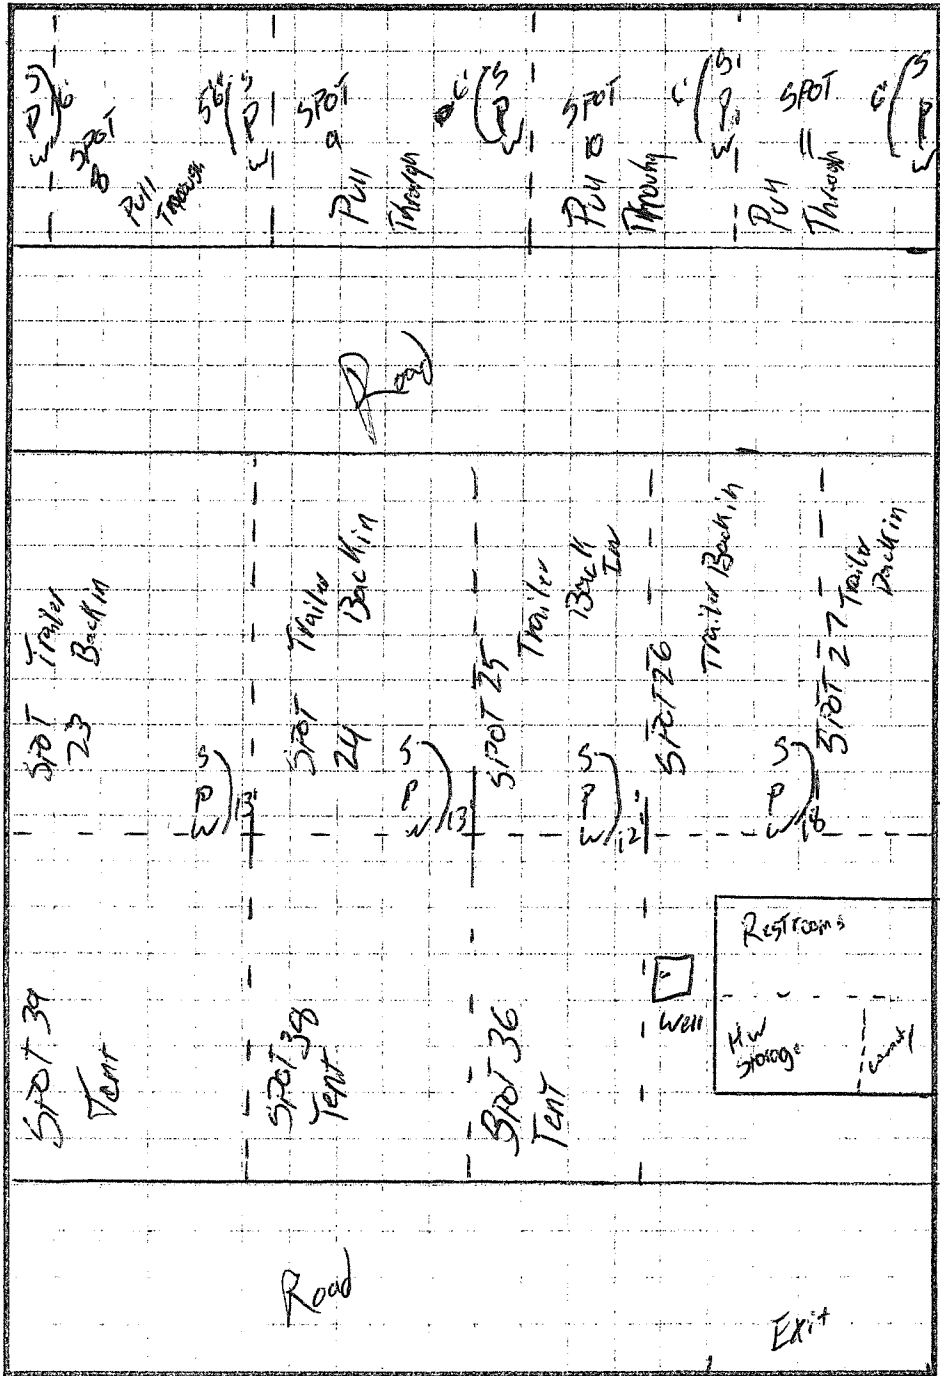 S
P
W
6'
SPOT
8
Pull
Through
S
P
W
6'
SPOT
9
Pull
Through
S
P
W
6'
SPOT
10
Pull
Through
S
P
W
6'
SPOT
11
Pull
Through
S
P
W
6'
Road
SPOT
23
Trailer
Back in
S
P
W
13'
SPOT
24
Trailer
Back in
S
P
W
13
SPOT 25
Trailer
Back
In
S
P
W
12'
SPOT 26
Trailer Back in
S
P
W
18
SPOT 27 Trailer
Back in
SPOT 39
Tent
SPOT 38
Tent
SPOT 36
Tent
Well
Restrooms
HW
Storage
Road
Exit